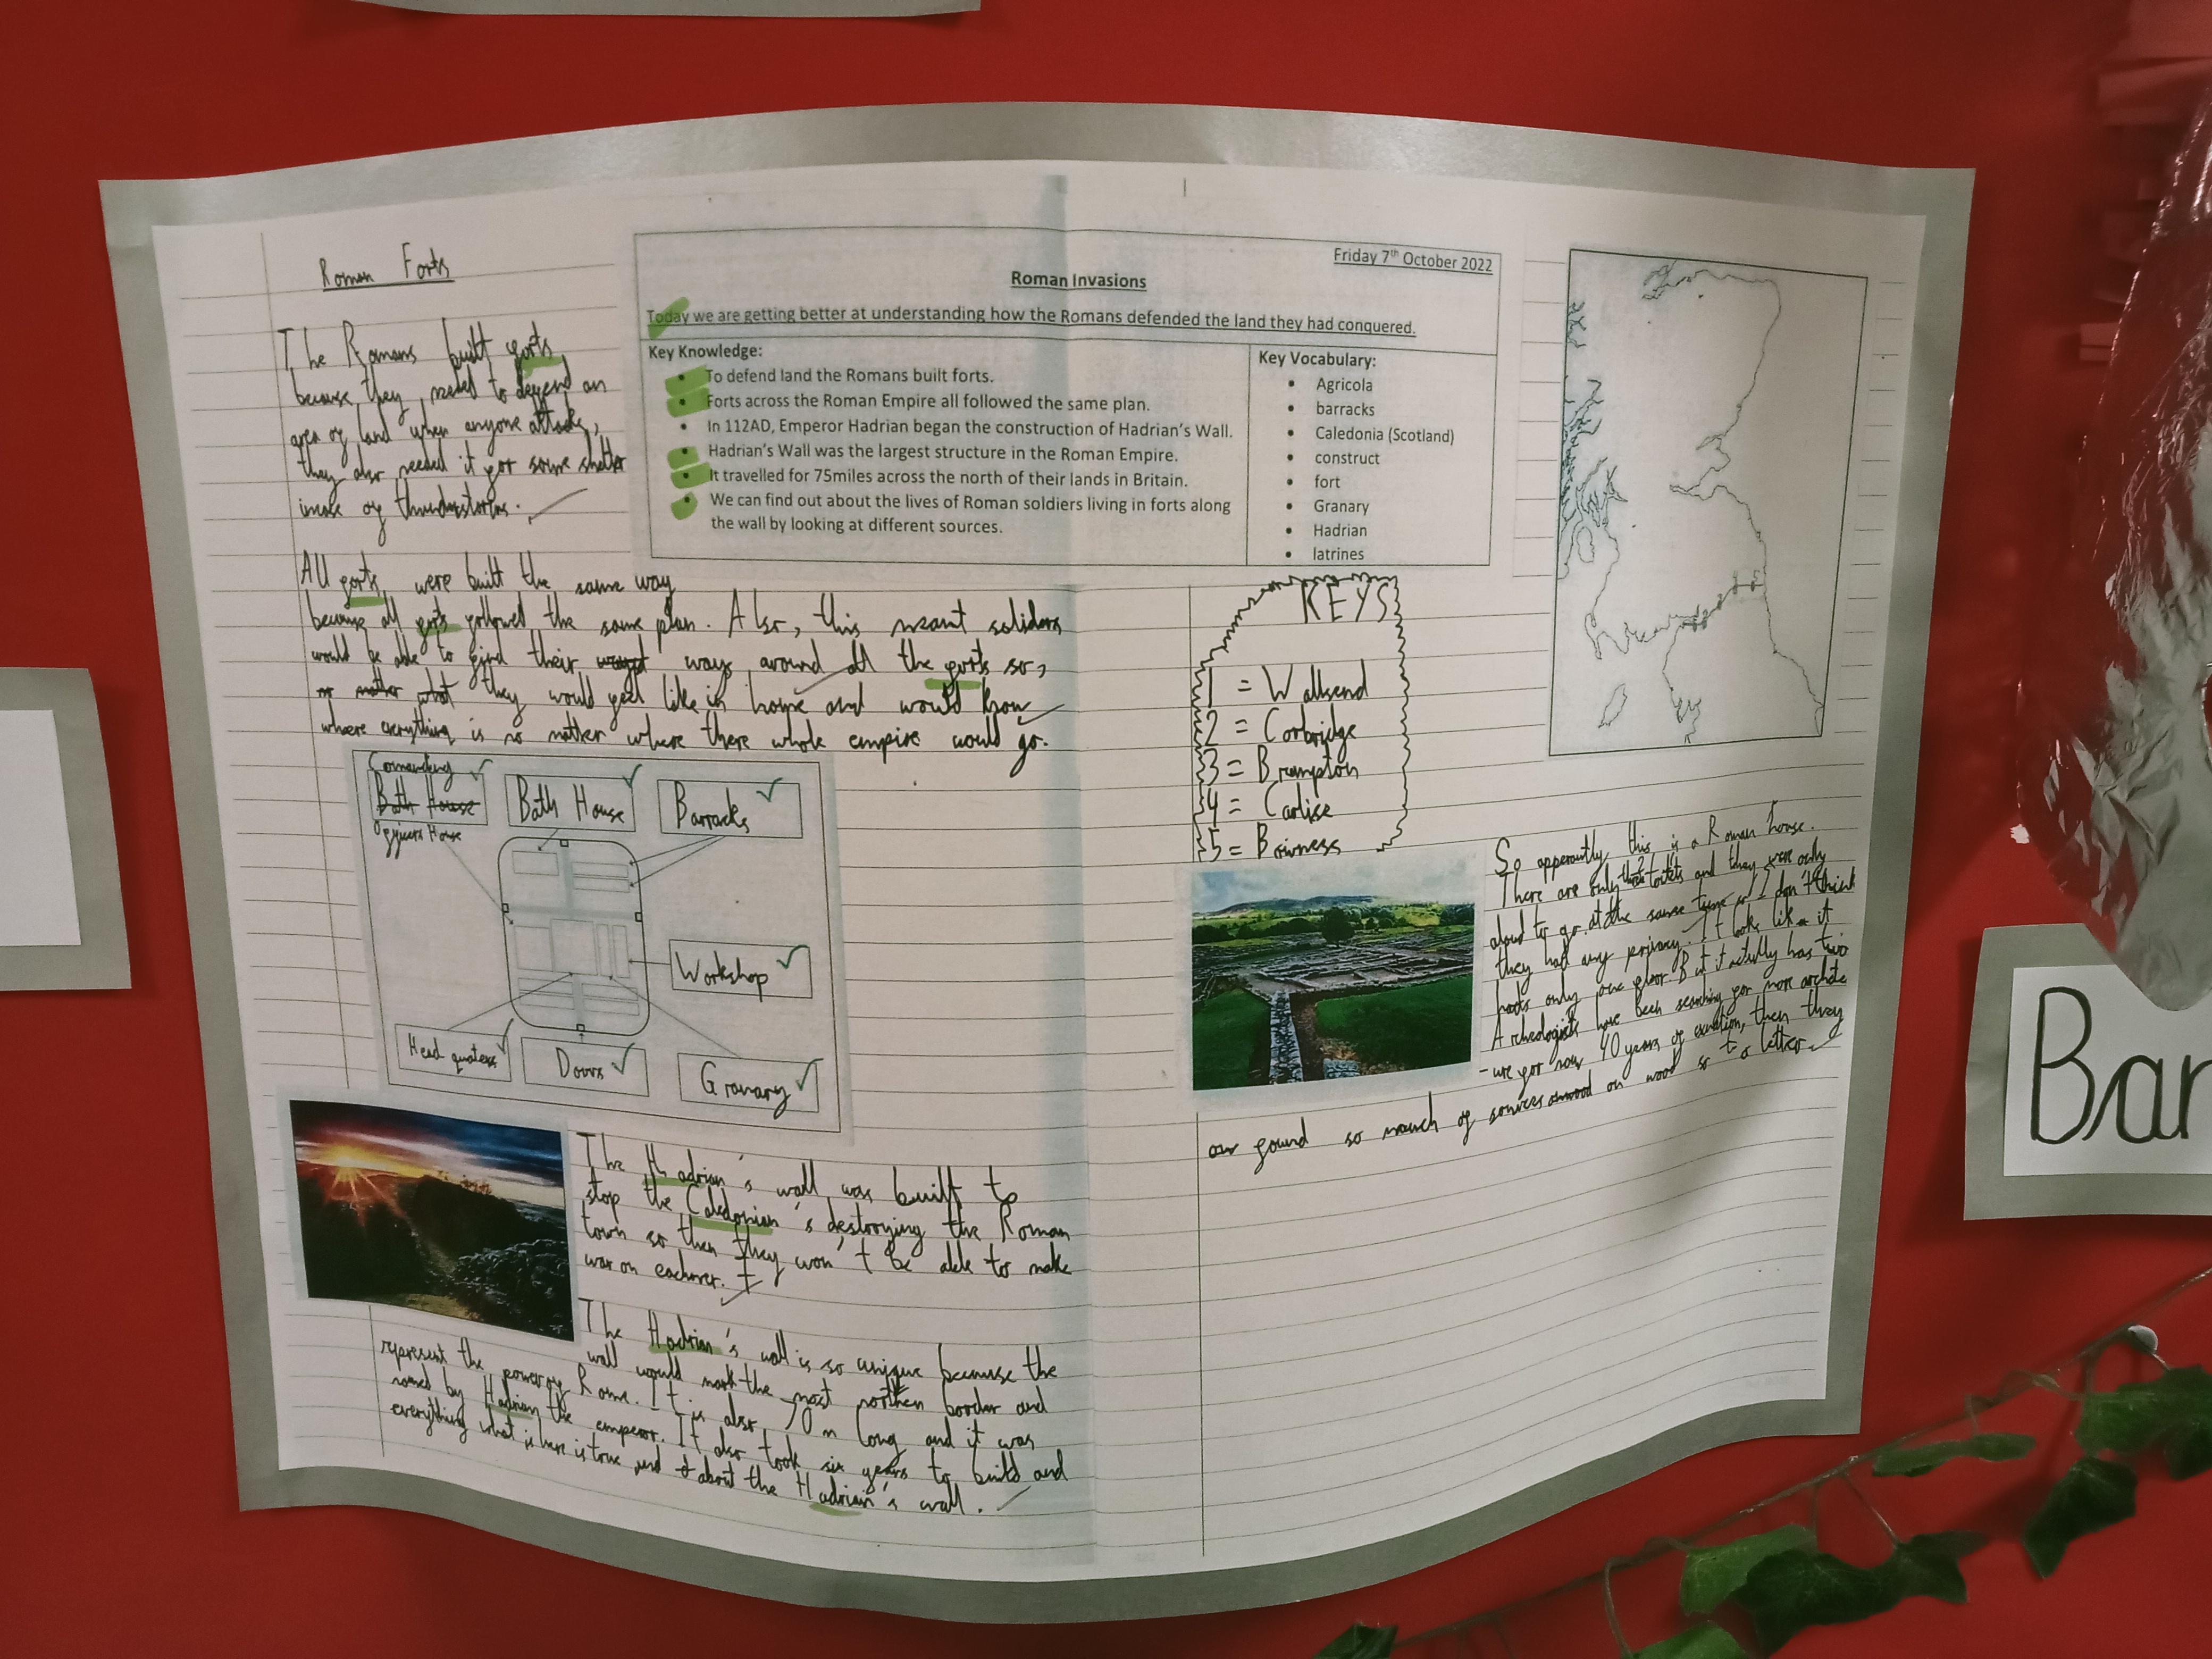 Roman Forts
The Romans built forts
because they need to defend an
area of land when anyone attacks,
they also needed it for some shelter
incase of thunderstorms.
Friday 7th October 2022
Roman Invasions
Today we are getting better at understanding how the Romans defended the land they had conquered.
Key Knowledge:
• To defend land the Romans built forts.
• Forts across the Roman Empire all followed the same plan.
• In 112AD, Emperor Hadrian began the construction of Hadrian's Wall.
• Hadrian's Wall was the largest structure in the Roman Empire.
• It travelled for 75miles across the north of their lands in Britain.
• We can find out about the lives of Roman soldiers living in forts along
the wall by looking at different sources.
Key Vocabulary:
• Agricola
• barracks
• Caledonia (Scotland)
• construct
• fort
• Granary
• Hadrian
• latrines
All forts were built the same way
because all forts followed the same plan. Also, this meant soliders
would be able to find their ways around all the forts so,
no matter what they would feel like in home and would know
where everything is no matter where there whole empire would go.
Comanding
Bath House
Officers House
Bath House
Barracks
Workshop
Head quaters
Doors
Granary
The Hadrian's wall was built to
stop the Caledonian's destorying the Roman
town so then they won't be able to make
war on eachover.
The Hadrian's wall is so unique because the
wall would mark the most northen border and
represent the power of Rome. It is also 70m long and it was
named by Hadrian the emperor. It also took six years to build and
everything what is here is true and about the Hadrian's wall.
KEYS
1 = Wallsend
2 = Corbridge
3 = Brampton
4 = Carlise
5 = Bowness
So apperantly this is a Roman house.
There are only three toilets and they were only
aloud to go at the same time so I don't think
they had any privacy. It looks like it
has only one floor. But it actully has two
Archeologists have been searching for more archite
-ure for now 40 years of , then they
found so much of on wood so to a letter
Bar